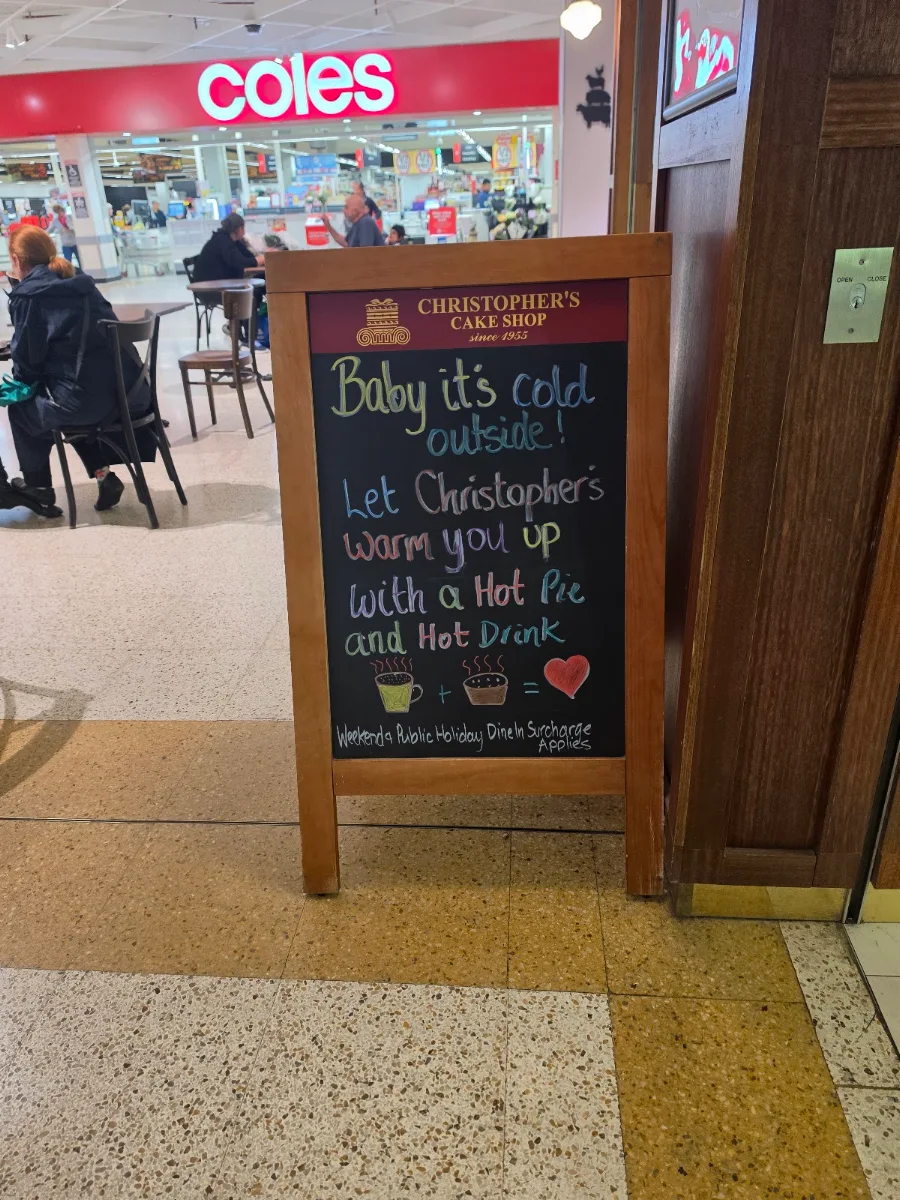 coles
OPEN CLOSE
CHRISTOPHER'S
CAKE SHOP
since 1955
Baby it's cold
outside!
Let Christopher's
warm you up
with a Hot Pie
and Hot Drink
+ =
Weekend & Public Holiday Dine In Surcharge
Applies